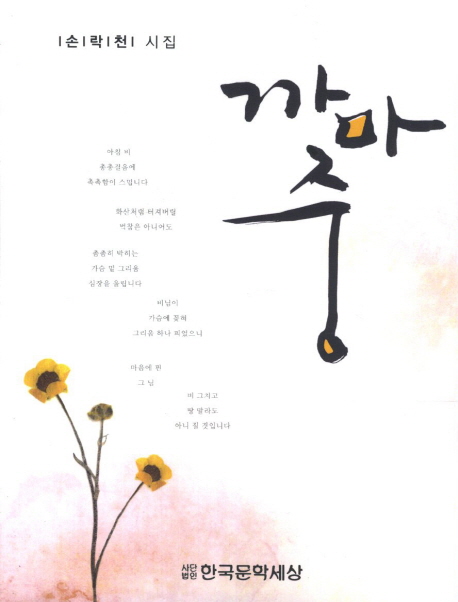 |손|락|천| 시집
까마중
아침 비
총총걸음에
촉촉함이 스밉니다
화산처럼 터져버릴
벅참은 아니어도
촘촘히 박히는
가슴 밑 그리움
심장을 울립니다
비님이
가슴에 묻혀
그리움 하나 피었으니
마음에 핀
그 님
비 그치고
땅 말라도
아니 질 것입니다
사단
법인 한국문학세상